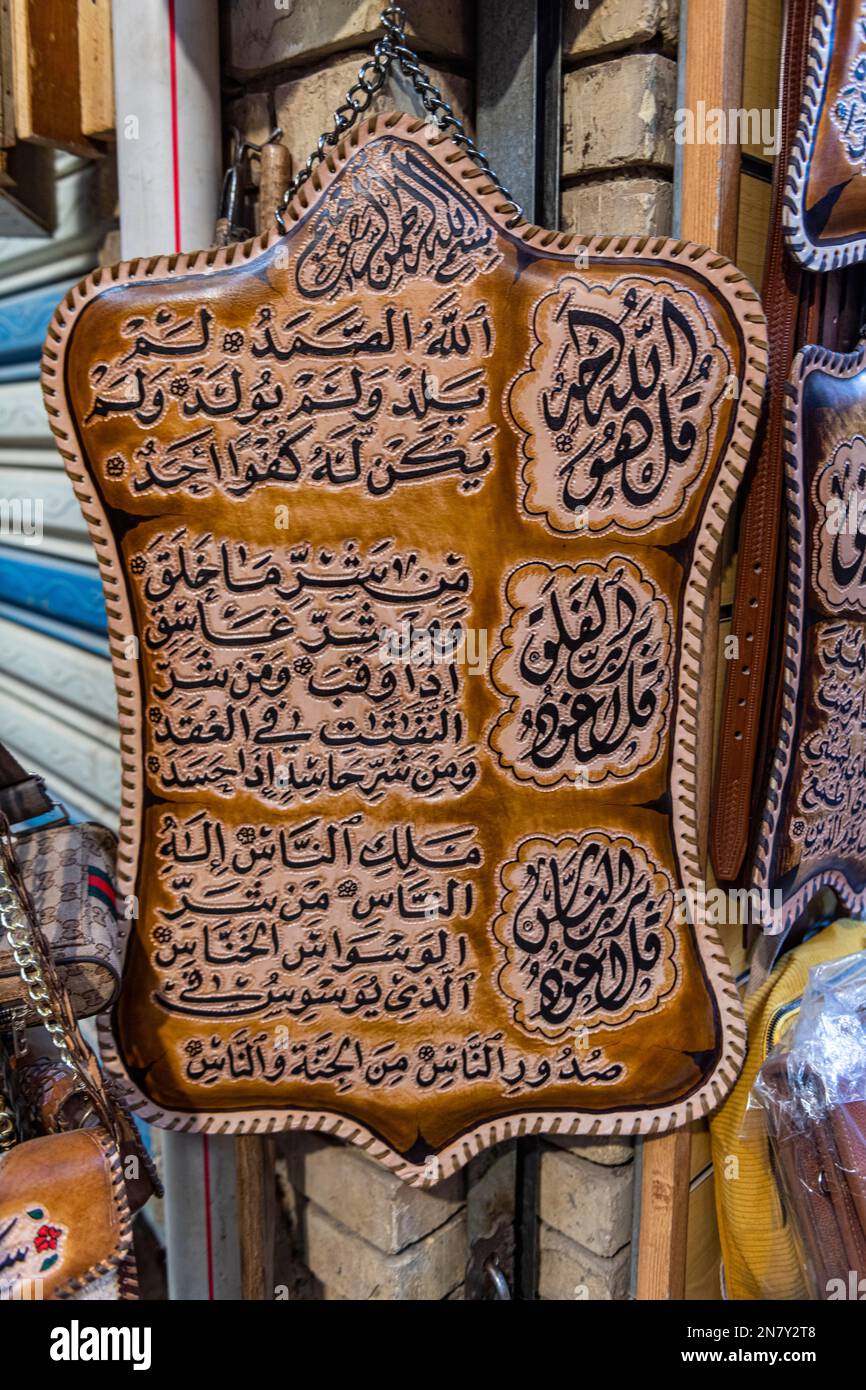 بسم الله الرحمن الرحيم
قل هو الله أحد
ٱللَّهُ الصَّمَدُ لَمْ
يَلِدْ وَلَمْ يُولَدْ وَلَمْ
يَكُنْ لَهُ كُفُوًا أَحَدٌ
قل أعوذ برب الفلق
مِنْ شَرِّ مَا خَلَقَ
وَمِنْ شَرِّ غَاسِقٍ
إِذَا وَقَبَ وَمِنْ شَرِّ
النَّفَّٰثَٰتِ فِي الْعُقَدِ
وَمِنْ شَرِّ حَاسِدٍ إِذَا حَسَدَ
قل أعوذ برب الناس
مَلِكِ ٱلنَّاسِ إِلَٰهِ
النَّاسِ مِنْ شَرِّ
الْوَسْوَاسِ الْخَنَّاسِ
ٱلَّذِي يُوَسْوِسُ فِي
صُدُورِ ٱلنَّاسِ مِنَ الْجِنَّةِ وَٱلنَّاسِ
alamy
Image ID: 2N7Y2T8
www.alamy.com